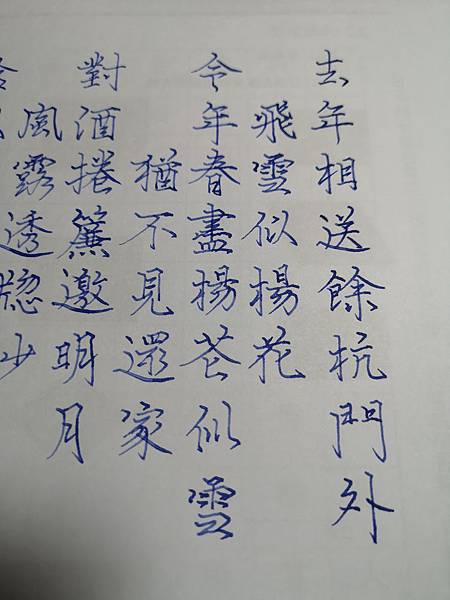 去年相送餘杭門外
飛雲似楊花
今年春盡楊花似雲
猶不見還家
對酒捲簾邀明月
風露透